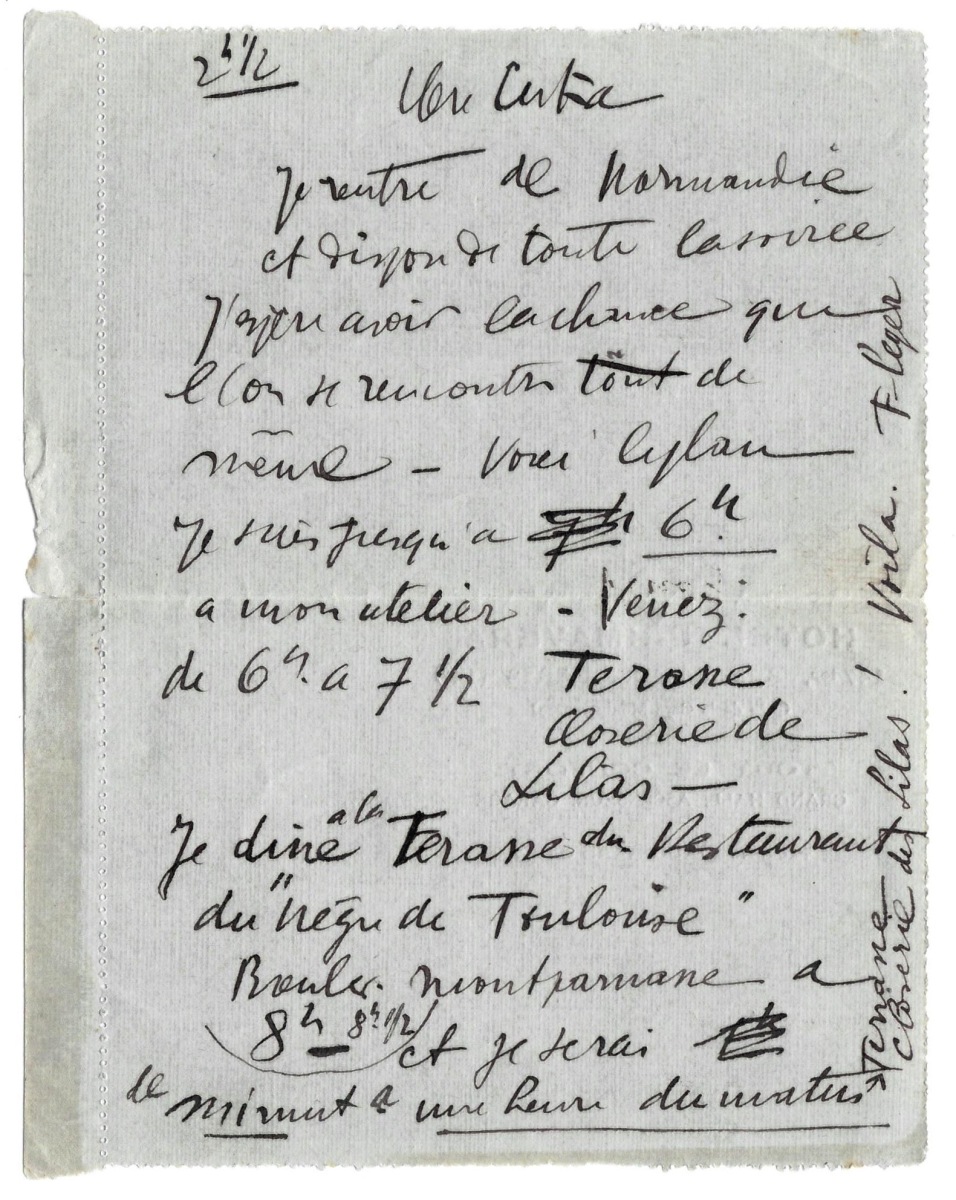 2h 1/2
Chère Certia
Je rentre de Normandie
et dispon de toute la soirée
J'espère avoir la chance que
l'on se rencontre tout de
même – Voici le plan
Je suis jusqu'a 6h
a mon atelier – Venez.
de 6h. a 7 1/2 Terasse
Closerie de
Lilas –
Je dine a la Terasse du Restaurant
du "Nègre de Toulouse"
Boulev. Montparnasse a
8h – 8h 1/2 et je serai
de minuit a une heure du matin
Terrasse
Closerie des Lilas ! Voila. F Leger